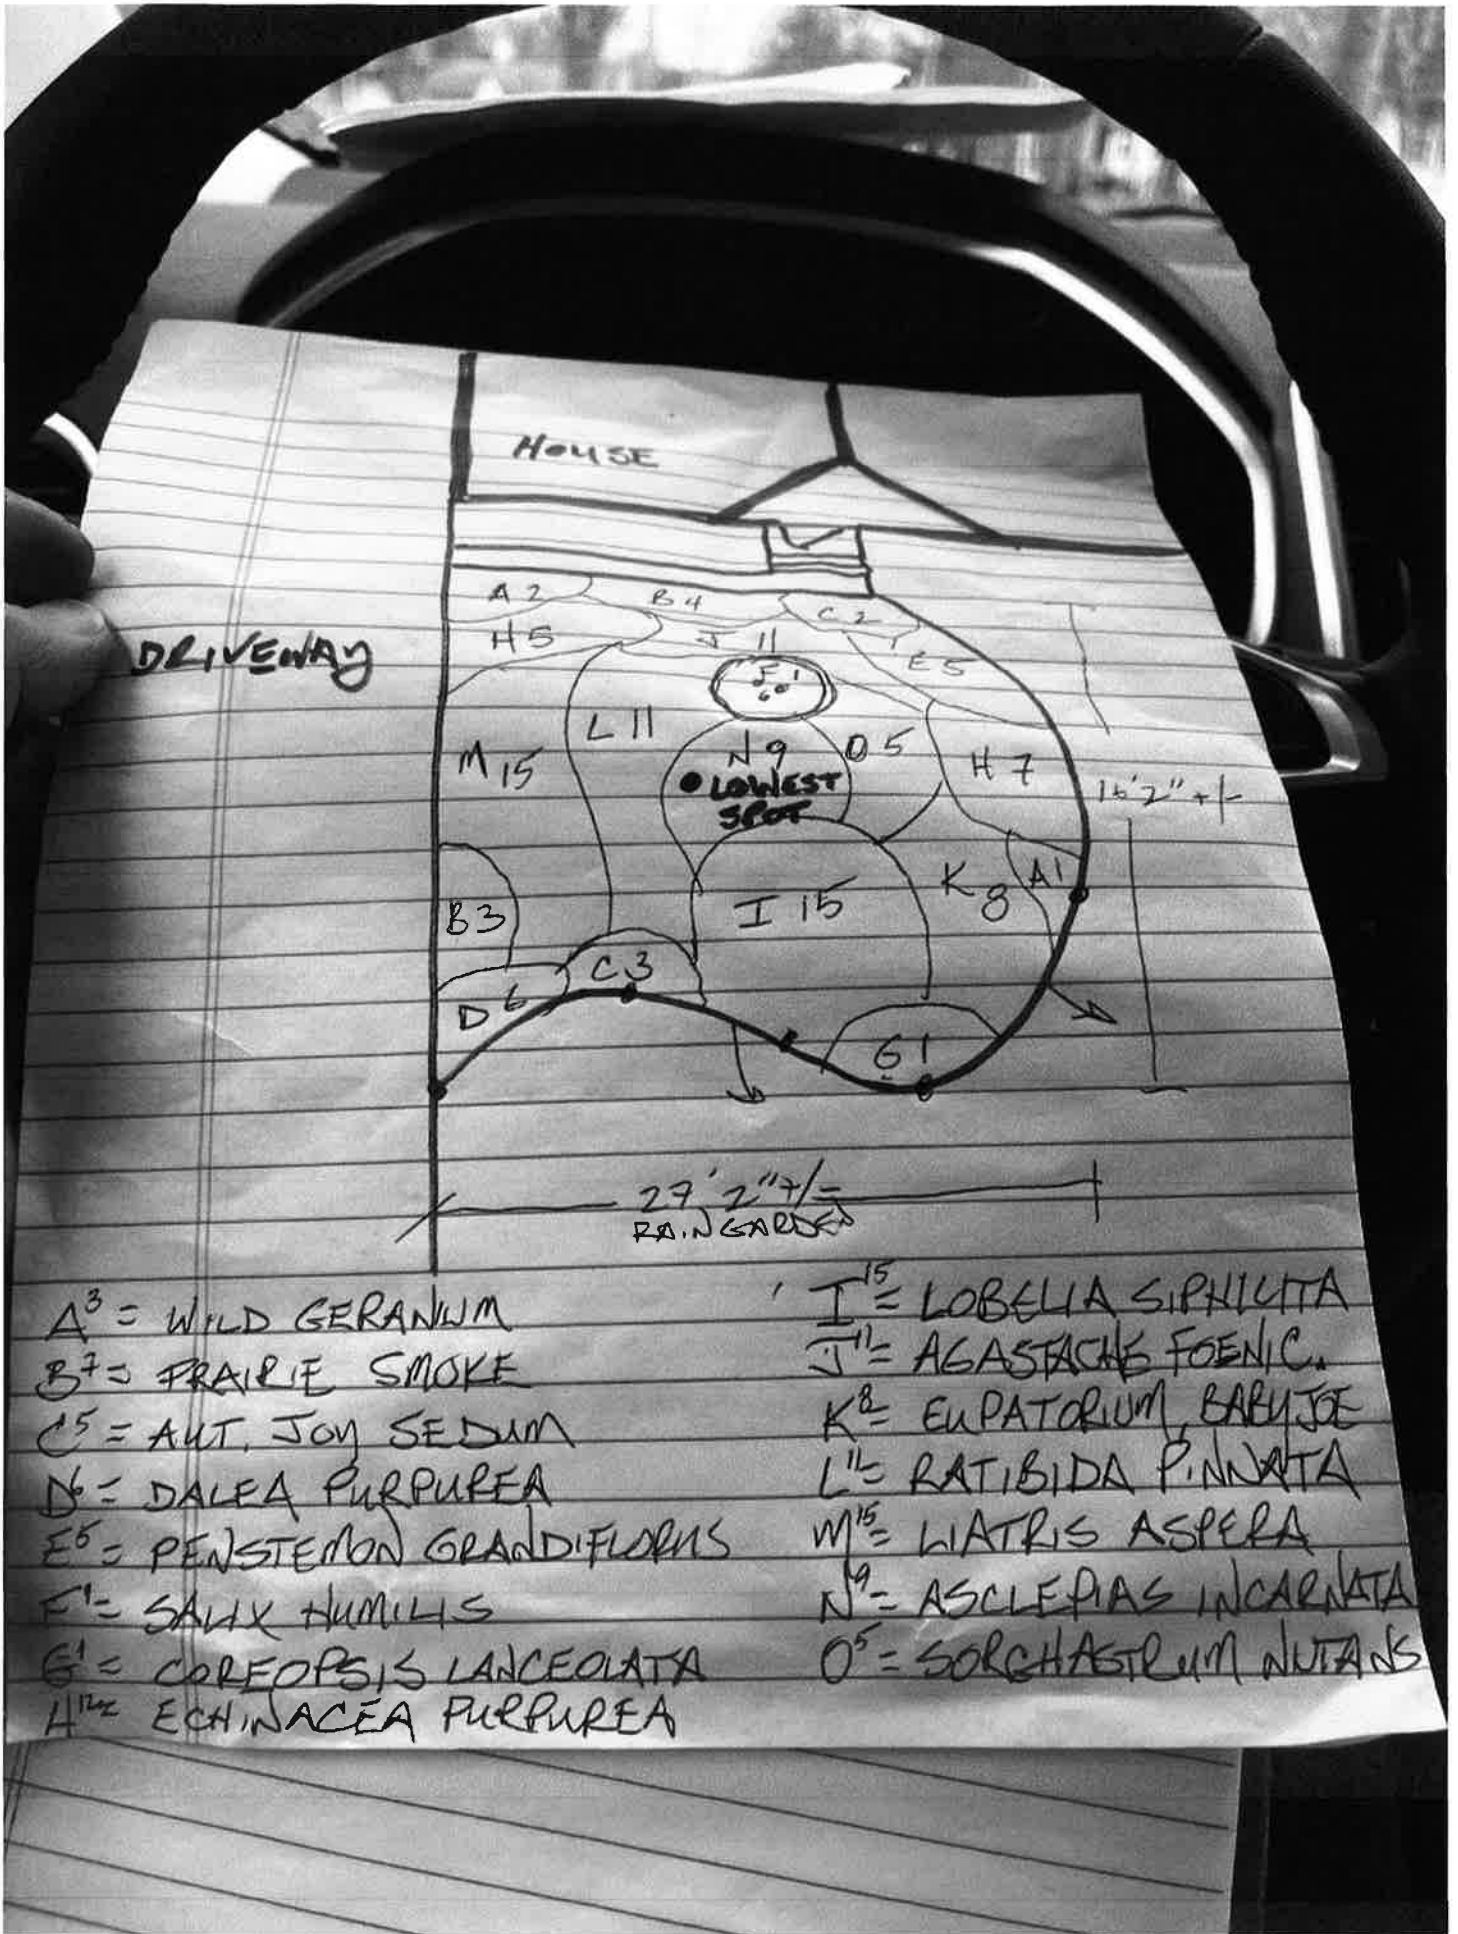 HOUSE
A 2
B 4
C 2
DRIVEWAY
H 5
J 11
E 5
F 1
L 11
N 9
O 5
M 15
H 7
LOWEST
SPOT
16'2" +/-
K 8
A 1
B 3
I 15
C 3
D 6
G 1
27'2" +/-
RAINGARDEN
A³ = WILD GERANIUM
B⁷ = PRAIRIE SMOKE
C⁵ = AUT. JOY SEDUM
D⁶ = DALEA PURPUREA
E⁵ = PENSTEMON GRANDIFLORUS
F¹ = SALIX HUMILIS
G¹ = COREOPSIS LANCEOLATA
H¹² = ECHINACEA PURPUREA
I¹⁵ = LOBELIA SIPHILITA
J¹¹ = AGASTACHE FOENIC.
K⁸ = EUPATORIUM, BABY JOE
L¹¹ = RATIBIDA PINNATA
M¹⁵ = LIATRIS ASPERA
N⁹ = ASCLEPIAS INCARNATA
O⁵ = SORGHASTRUM NUTANS